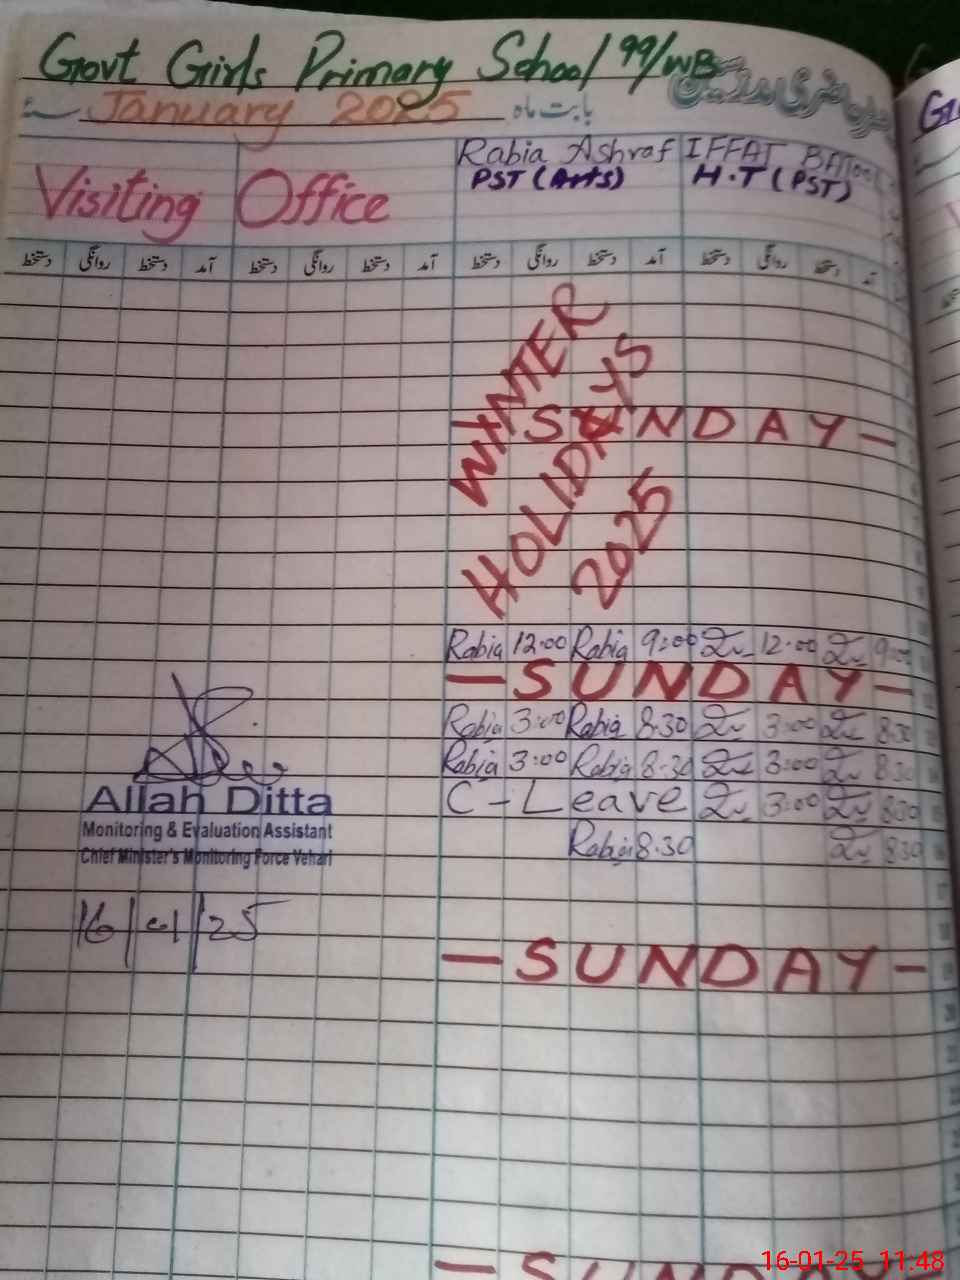 Govt Girls Primary School 99/WB
January 2025 بابت ماہ
Visiting Office
Rabia Ashraf IFFAT
PST (Arts) H.T (PST)
دستخط روانگی دستخط آمد دستخط روانگی دستخط آمد دستخط روانگی دستخط آمد دستخط روانگی دستخط آمد
WINTER
HOLIDAYS
2025
- SUNDAY -
Rabia 12:00 Rabia 9:00 12:00 9:00
- SUNDAY -
Rabia 3:00 Rabia 8:30 3:00 8:30
Rabia 3:00 Rabia 8:30 3:00 8:30
C - Leave 3:00 8:30
Rabia 8:30 8:30
Allah Ditta
Monitoring & Evaluation Assistant
Chief Minister's Monitoring Force Vehari
16/01/25
- SUNDAY -
- SUNDAY
16-01-25 11:48